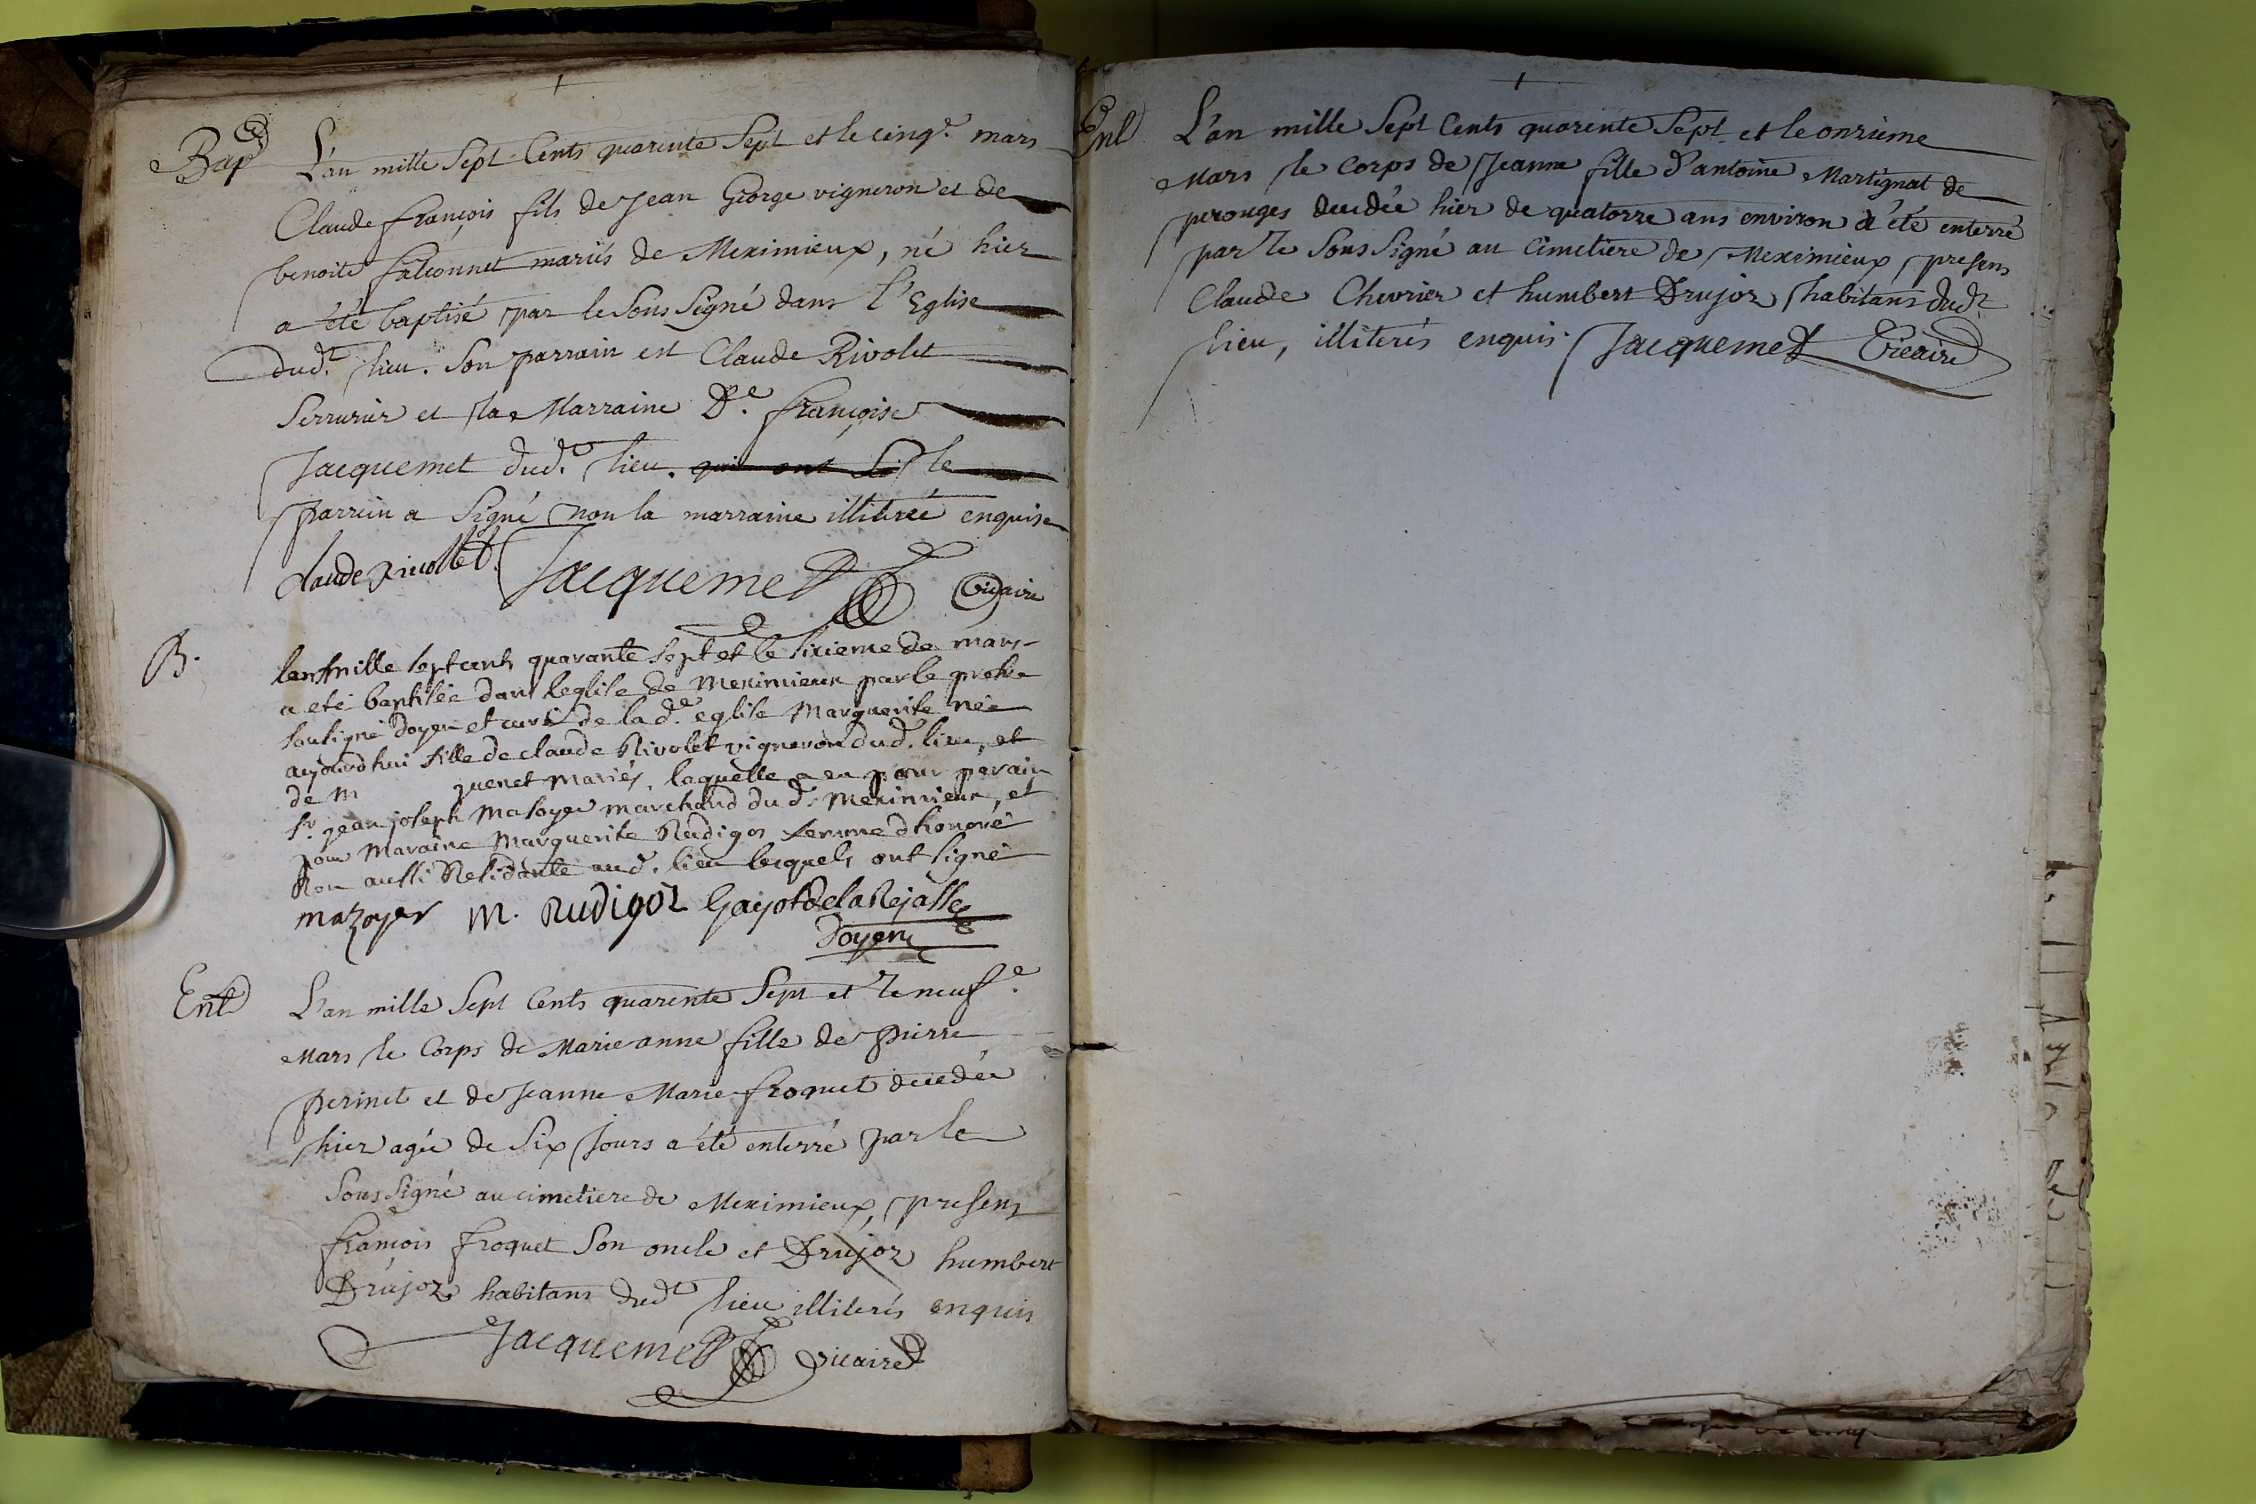 Bap
L'an mille Sept Cents quarente Sept et le cinq.e mars
Claude françois fils de Jean George vigneron et de
benoite falconnet mariés de Meximieux, né hier
a été baptisé par le Sous Signé dans l'Eglise
dud.t lieu. Son parrain est Claude Rivolet
Serrurier et la Marraine D.e françoise
Jacquemet dud.t lieu. qui ont Si le
parrein a Signé non la marraine illiterée enquise
claude rivollet Jacquemet vicaire
B.
lan mille sept cents quarante sept et le sixieme de mars
a eté baptisée dans leglise de Meximieux par le pretre
sousigné Doyen et curé de la d.e eglise Marguerite née
aujourdhui fille de claude Rivolet vigneron dud. lieu, et
de M quenet Mariés, laquelle a eu pour parain
sr. jean joseph Masoyer marchand du d. Meximieux, et
pour Maraine Marguerite Rudigos femme dhonoré
Ron aussi Residante aud. lieu lesquels ont signé
mazoyer M. Rudigoz Gayot de la Rejasse
Doyen
Ent
L'an mille Sept Cents quarente Sept et le neuf.e
Mars le Corps de Marie anne fille de pierre
perinet et de Jeanne Marie froquet decedée
hier agée de Six Jours a été enterré par le
Sous Signé au cimetiere de Meximieux, presens
françois froquet Son oncle et Drujoz humbert
Drujoz habitans dud.t lieu illiterés enquis
Jacquemet vicaire
Ent
L'an mille Sept Cents quarente Sept et le onzieme
Mars le Corps de Jeanne fille d'antoine Martignat de
perouges decedée hier de quatorze ans environ a été enterré
par le Sous Signé au Cimetiere de Meximieux presens
Claude Chevrier et humbert Drujoz habitans dud.t
lieu, illiterés enquis. Jacquemet Vicaire